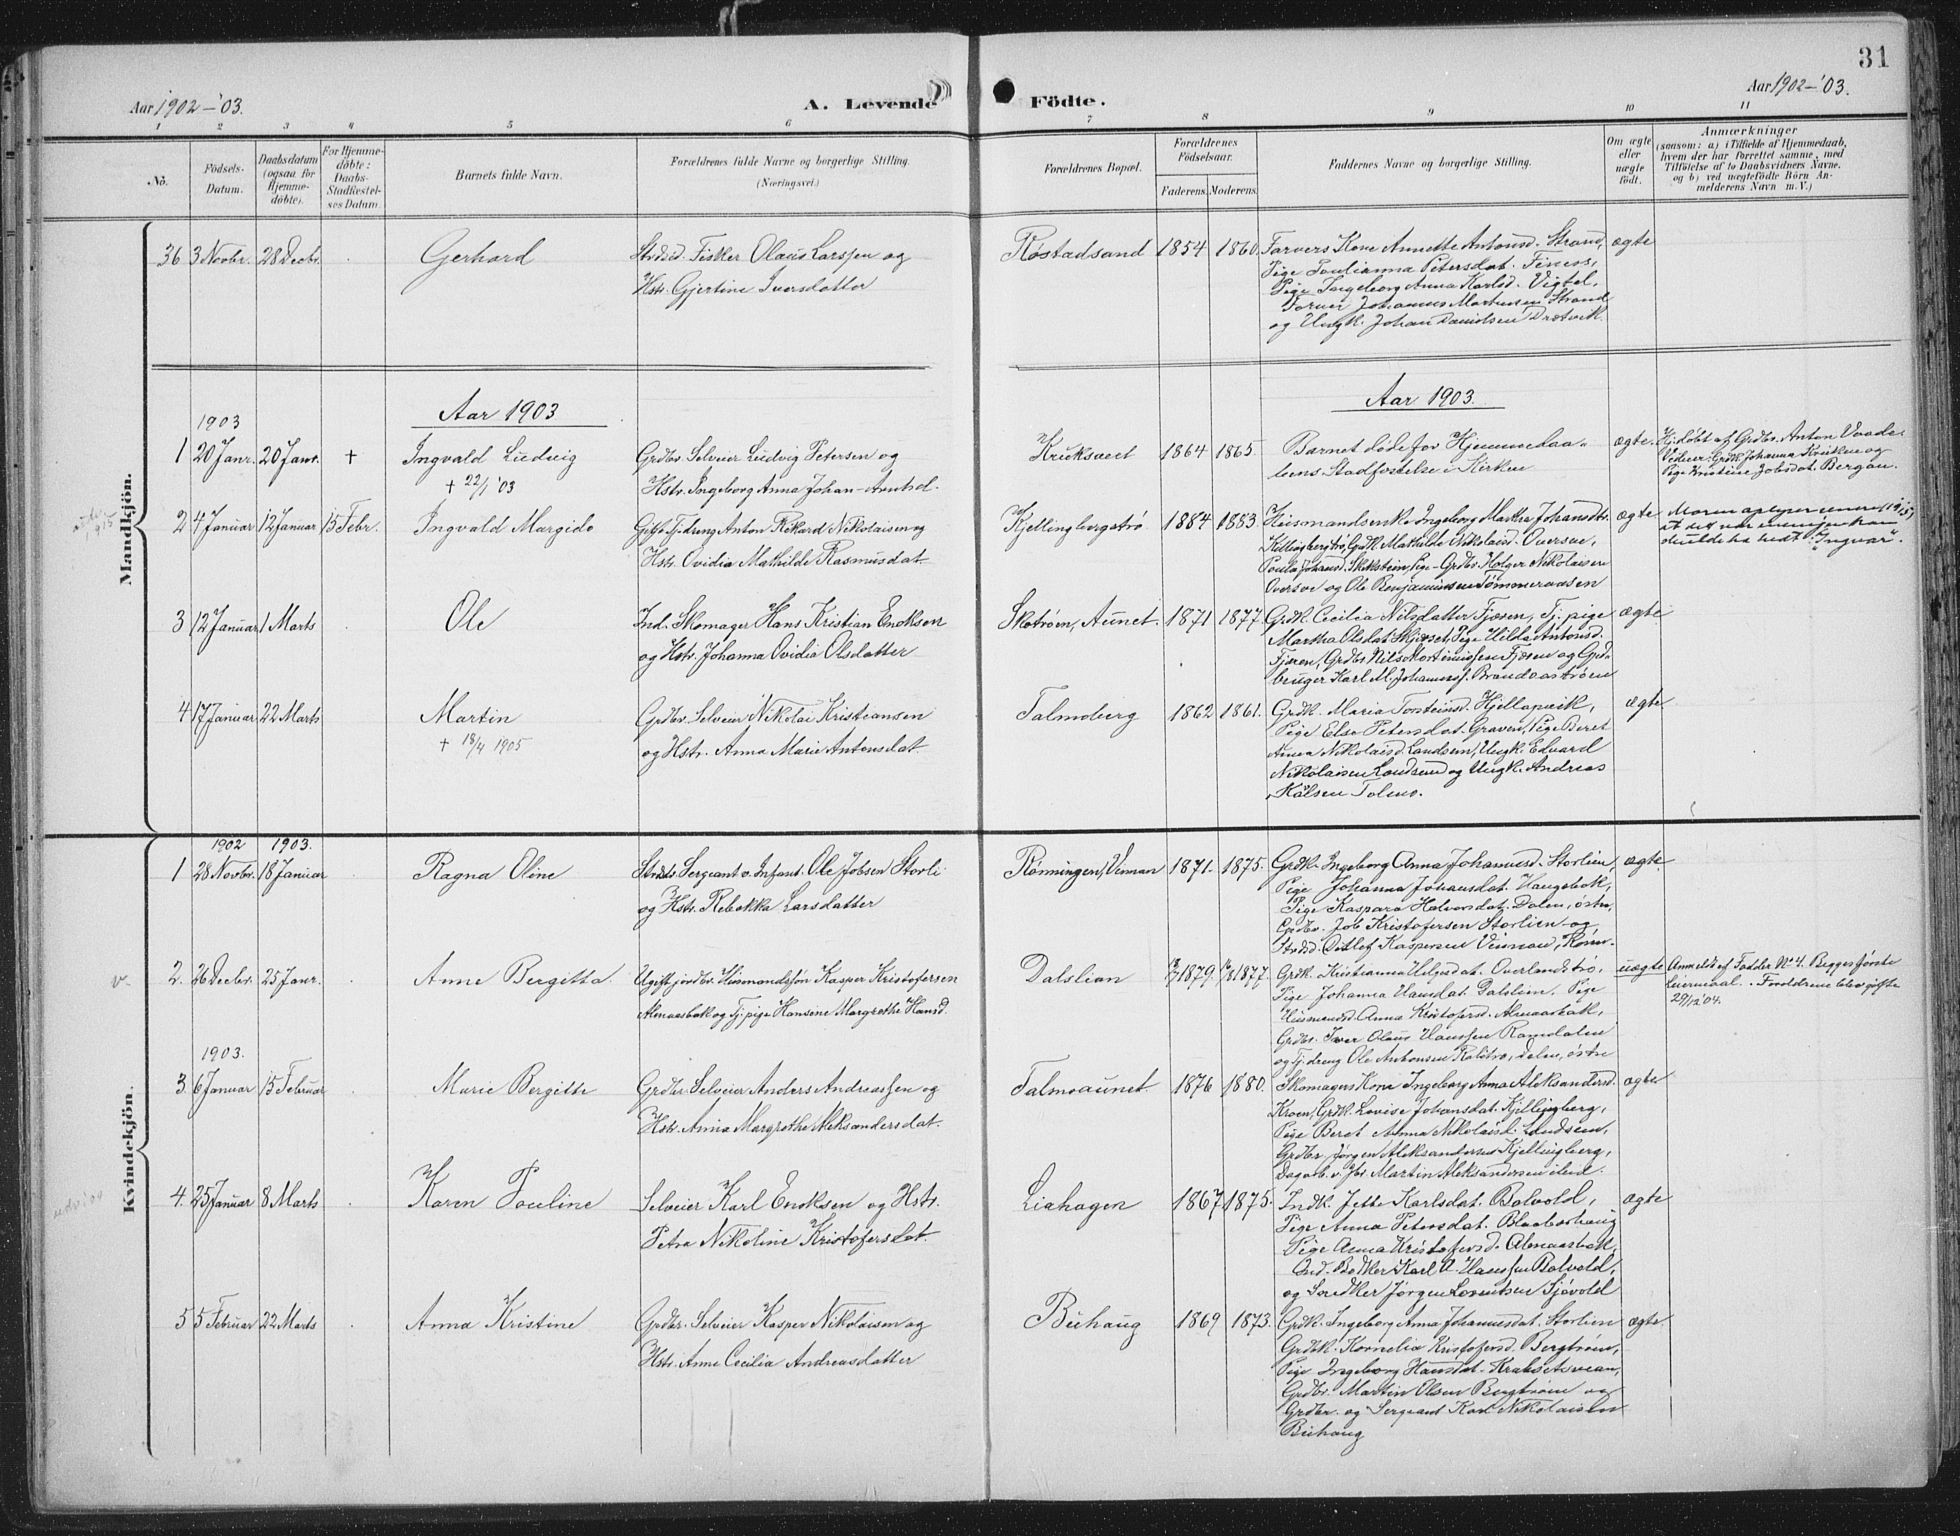 31
Aar 1902-'03.
A. Levende
Födte.
Aar 1902-'03.
1 2 3 4 5 6 7 8 9 10 11
No.
Födsels-
Datum.
Daabsdatum
(ogsaa for
Hjemme-
döbte).
For Hjemme-
döbte:
Daabs-
Stadfæstel-
ses Datum.
Barnets fulde Navn.
Forældrenes fulde Navne og borgerlige Stilling.
(Næringsvei.)
Forældrenes Bopæl.
Forældrenes
Födselsaar.
Faderens. Moderens.
Faddernes Navne og borgerlige Stilling.
Om ægte
eller
uægte
födt.
Anmærkninger
(saasom: a) i Tilfælde af Hjemmedaab,
hvem der har forrettet samme, med
Tilföielse af to Daabsvidners Navne.
og b) ved uægtefödte Börn An-
melderens Navn m. V.)
Mandkjön.
36 3 Novbr. 28 Decbr. Gerhard
Strdsd. Fisker Olaus Larssen og
Hstr. Gjertine Iversdatter
Röstadsand 1854 1860.
Farvers Kone Annette Antonsd. Strand,
Pige Paulianna Petersdat. Finess,
Pige Ingeborg Anna Karlsd. Vigtel,
Farver Johannes Martinsen Strand
og Ungk. Johan Danielsen Drætvik.
ægte
Aar 1903
Aar 1903.
1903
1 20 Janr. 20 Janr. + Ingvald Ludvig
+ 22/1 '03
Grdbr. Selveier Ludvig Petersen og
Hstr. Ingeborg Anna Johan-Arntsd.
1864 1865.
Barnet döde för Hjemmedaa-
bens Stadfæstelse i Kirken
ægte.
Hj.döbt af Grdbr. Anton Vaade.
Vidner: Grdk. Johanna og
Pige Kristine Jobsdat. Bergan.
1915
2 4 Januar 12 Januar 15 Febr. Ingvald Margido
Gift Tj.dreng Anton Rikard Nikolaisen og
Hstr. Ovidia Mathilde Rasmusdat.
Kjellingbergströ 1884 1883.
Husmandsenke Ingeborg Martha Johansdtr.
Killingbergtrö, Grdk. Mathilde Nikolaisd. Oversve,
Paula Johansd. Pige - Grdbr. Holger Nikolaisen
Oversve og Ole Benjaminsen Tömmeraasen
ægte
Moren opgiver senere (1915)
at det var meningen han
skulde ha hedt "Ingvar".
3 12 Januar 1 Marts Ole
Ind. Skomager Hans Kristian Enoksen
og Hstr. Johanna Ovidia Olsdatter
Skoträen, Aunet. 1871 1877.
Grdk. Cecilia Nilsdatter Fjæren, Tj.pige
Martha Olsdat. Skjerset, Pige Hilda Antonsd.
Fjæren, Grdbr. Nils Mortinussen Fjæren og Grd-
bruger Karl M. Johannesf. Brandaaströen
ægte
4 17 Januar 22 Marts Martin
+ 18/4 1905
Grdbr. Selveier Nikolai Kristiansen
og Hstr. Anna Marie Antonsdat.
Talmoberg 1862 1861.
Grdk. Maria Torsteinsd. Hjellapvik,
Pige Else Petersdat. Graven, Pige Beret
Anna Nikolaisd. Landsem, Ungk. Edvard
Nikolaisen Landsem og Ungk. Andreas
Tolmo.
ægte
Kvindekjön.
1902 1903.
1 28 Novbr. 18 Januar Ragna Oline
Strdts. Sergeant v. Infant. Ole Jobsen Storli
og Hstr. Rebekka Larsdatter
Rönningen, Vinnan 1871. 1875.
Grdk. Ingeborg Anna Johannesd. Storlien,
Pige Johanna Johansdat. Haugebak,
Pige Kaspara Halvorsdat. Dalen, östre,
Grdbr. Job Kristofersen Storlien og
Strdsd. Detlef Kaspersen Vinnan, Rönn.
ægte.
v.
2. 26 Decbr. 25 Janr. Anne Bergitta.
Ugift jordbr. Husmandssön Kasper Kristofersen
Almaasbak og Tj.pige Hansene Margrethe Hansd.
Dalslian 1879. 1877.
Grdk. Kristianna Helgesdat. Overlandströ,
Pige Johanna Hansdat. Dalslien. Pige
Husmandsd. Anna Kristofersd. Almaasbak,
Grdbr. Iver Olaus Hanssen Ramdalen
og Tj.dreng Ole Antonsen Dalen, östre
uægte
Anmeldt af Fadder No 4. Begges förste
Leiermaal. - Forældrene blev gifte
29/12 '04.
1903.
3. 6 Januar 15 Februar Marie Bergitte
Grdbr. Selveier Anders Andreassen og
Hstr. Anna Margrethe Aleksandersdat.
Talmoaunet 1876 1880.
Skomagers Kone Ingeborg Anna Aleksandersd.
Kroen, Grdk. Lovise Johansdat. Kjellingberg,
Pige Beret Anna Nikolaisd. Landsem,
Grdbr. Jörgen Aleksandersen Kjellingberg,
Dagarb. v. Jbr. Martin Aleksandersen ileid.
ægte
udv. '09
4. 25 Januar 8 Marts Karen Pauline
Selveier Karl Enoksen og Hstr.
Petra Nikoline Kristofersdat.
Liahagen 1867 1875.
Indk. Jette Karlsdat. Bolvold,
Pige Anna Petersdat. Blaabærhaug
Pige Anna Kristofersd. Almaasbak,
Ind. Bödker Karl A. Hanssen Bolvold,
og Jörgen Lorentsen Sjövold
ægte
5 5 Februar 22 Marts Anna Kristine
Grdbr. Selveier Kasper Nikolaisen og
Hstr. Anne Cecilia Andreasdatter
Buhaug 1869 1873.
Grdk. Ingeborg Anna Johannesdat. Storlien
Grdk. Kornelia Kristofersd. Bergtröen,
Pige Ingeborg Hansdat.
Grdbr. Martin Olsen Bergtröen og
Grdbr. og Sergeant Karl Nikolaisen
Buhaug
ægte.